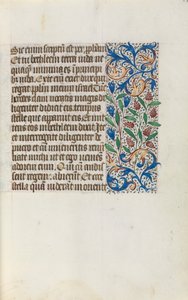 Sic enim scriptum est per prophetam
Et tu bethleem terra iuda ne
quaquam minima es in principi
bus iuda
regat populum meum israel Tu
herodes clam vocatis magis
diligenter didicit ab eis tempus
stelle que apparuit eis Et mitt
ens eos in bethleem dixit Ite
et interrogate diligenter de
puero et cum inveneritis renun
ciate michi ut et ego veniens
adorem eum Qui cum audi
ssent regem abierunt Et ecce
stella quam viderant in oriente